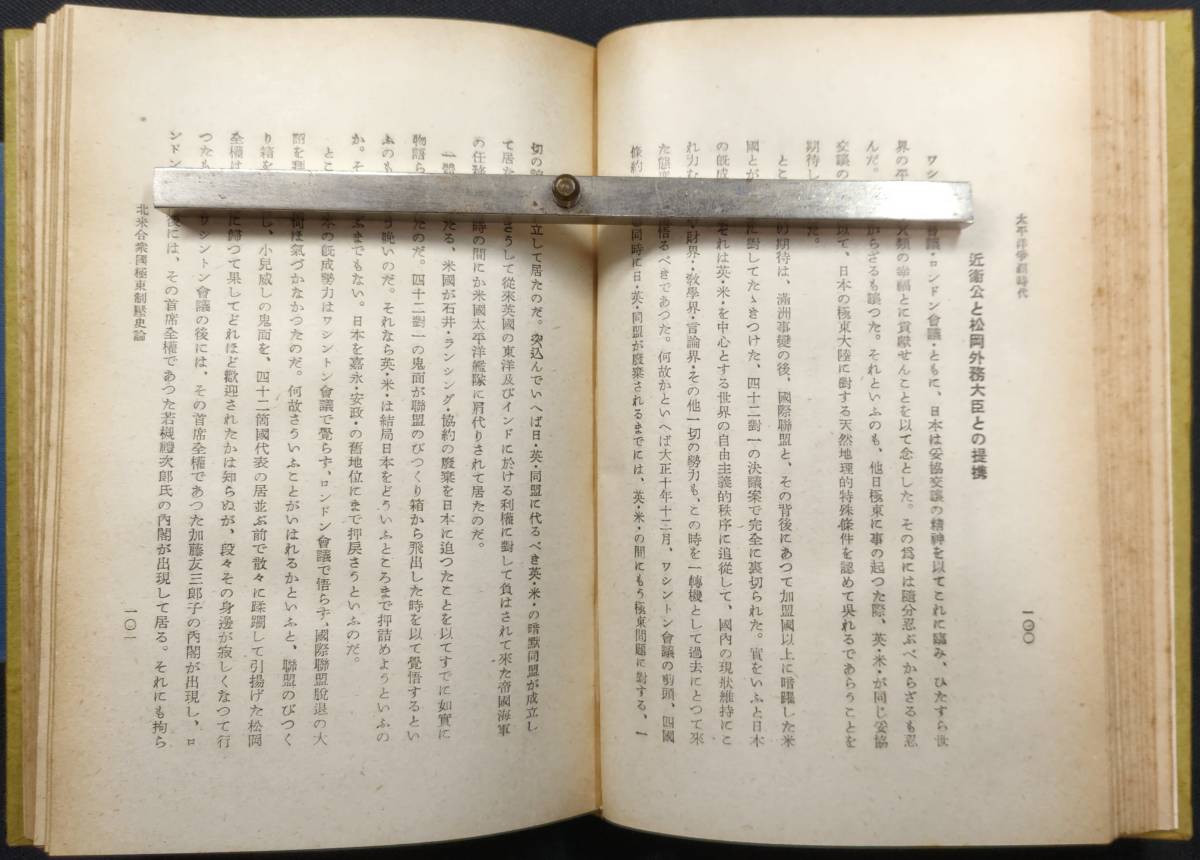 太平洋爭覇時代
一〇〇
近衞公と松岡外務大臣との提携
ワシ 會議・ロンドン會議・ともに、日本は妥協交讓の精神を以てこれに臨み、ひたすら世
界の平 人類の幸福とに貢獻せんことを以て念とした。その爲には隨分忍ぶべからざるも忍
んだ。 からざるも讓つた。それといふのも、他日極東に事の起つた際、英・米・が同じ妥協
交讓の 以て、日本の極東大陸に對する天然地理的特殊條件を認めて吳れるであらうことを
期待し だ。
とこ の期待は、滿洲事變の後、國際聯盟と、その背後にあつて加盟國以上に暗躍した米
國とが に對してたゝきつけた、四十二對一の決議案で完全に裏切られた。實をいふと日本
の旣成 それは英・米・を中心とする世界の自由主義的秩序に追從して、國內の現狀維持にこ
れ力む や財界・敎學界・言論界・その他一切の勢力も、この時を一轉機として過去にとつて來
た態 悟るべきであつた。何故かといへば大正十年十二月、ワシントン會議の剪頭、四國
條約 同時に日・英・同盟が廢棄されるまでには、英・米・の間にもう極東問題に對する、一
切の 立して居たのだ。突込んでいへば日・英・同盟に代るべき英・米・の暗默同盟が成立し
て居た さうして從來英國の東洋及びインドに於ける利權に對して負はされて來た帝國海軍
の任務 時の間にか米國太平洋艦隊に肩代りされて居たのだ。
一體 たる、米國が石井・ランシング・協約の廢棄を日本に迫つたことを以てすでに如實に
物語ら たのだ。四十二對一の鬼面が聯盟のびつくり箱から飛出した時を以て覺悟するとい
ふのも う晩いのだ。それなら英・米・は結局日本をどういふところまで押詰めようといふの
か。そ ぶまでもない。日本を嘉永・安政・の舊地位にまで押戾さうといふのだ。
とこ 本の旣成勢力はワシントン會議で覺らず、ロンドン會議で悟らず、國際聯盟脫退の大
詔を 尙ほ氣づかなかつたのだ。何故さういふことがいはれるかといふと、聯盟のびつく
り箱を し、小兒威しの鬼面を、四十二箇國代表の居並ぶ前で散々に蹂躙して引揚げた松岡
全權は に歸つて果してどれほど歡迎されたかは知らぬが、段々その身邊が寂しくなつて行
つたも ワシントン會議の後には、その首席全權であつた加藤友三郞子の內閣が出現し、ロ
ンドン 後には、その首席全權であつた若槻禮次郞氏の內閣が出現して居る。それにも拘ら
北米合衆國極東制壓史論
一〇一